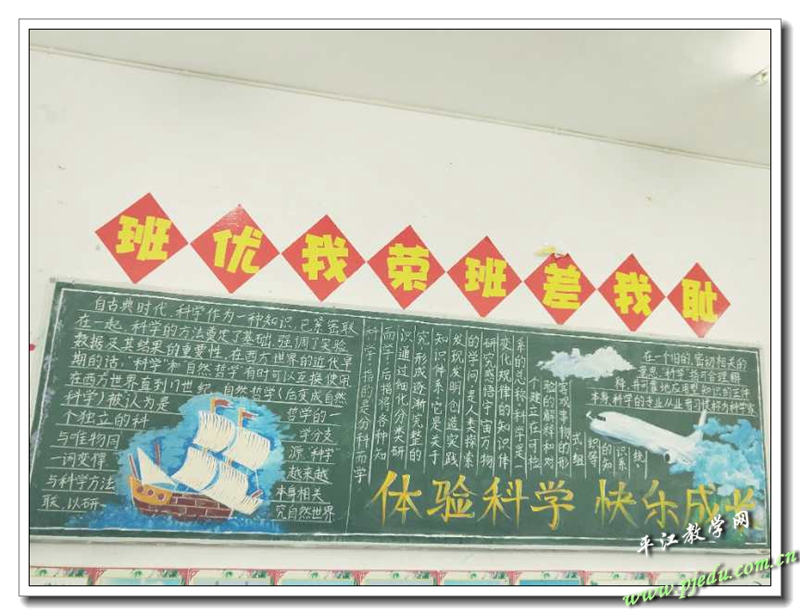 班优我荣班差我耻
自古典时代,科学作为一种知识,已紧密联
在一起,科学的方法奠定了基础,强调了实验
数据及其结果的重要性,在西方世界的近代早
期的话,"科学"和"自然哲学"有时可以互换使用
在西方世界直到17世纪,自然哲学(后变成自然
科学)被认为是
哲学的一
个独立的科
学分支
与唯物同
源,"科学"
一词变得
越来越
与科学方法
本身相关
联,以研
究自然世界
系的总称,科学是一
变化规律的知识体
研究感语宇宙万物
的学问,是人类探索
发现发明创造实践
知识体系,它是关于
究,形成逐渐完整的
识通过细化分类研
而学,后指将各种知
科学,指的是分科而学
在一个旧的,密切相关的
意思,"科学"指可合理解
客观事物的形
验的解释和对
个建立在可检
式,组
织等
的知
识系
统,
体验科学 快乐成长
平江教学网
www.pjedu.com.cn